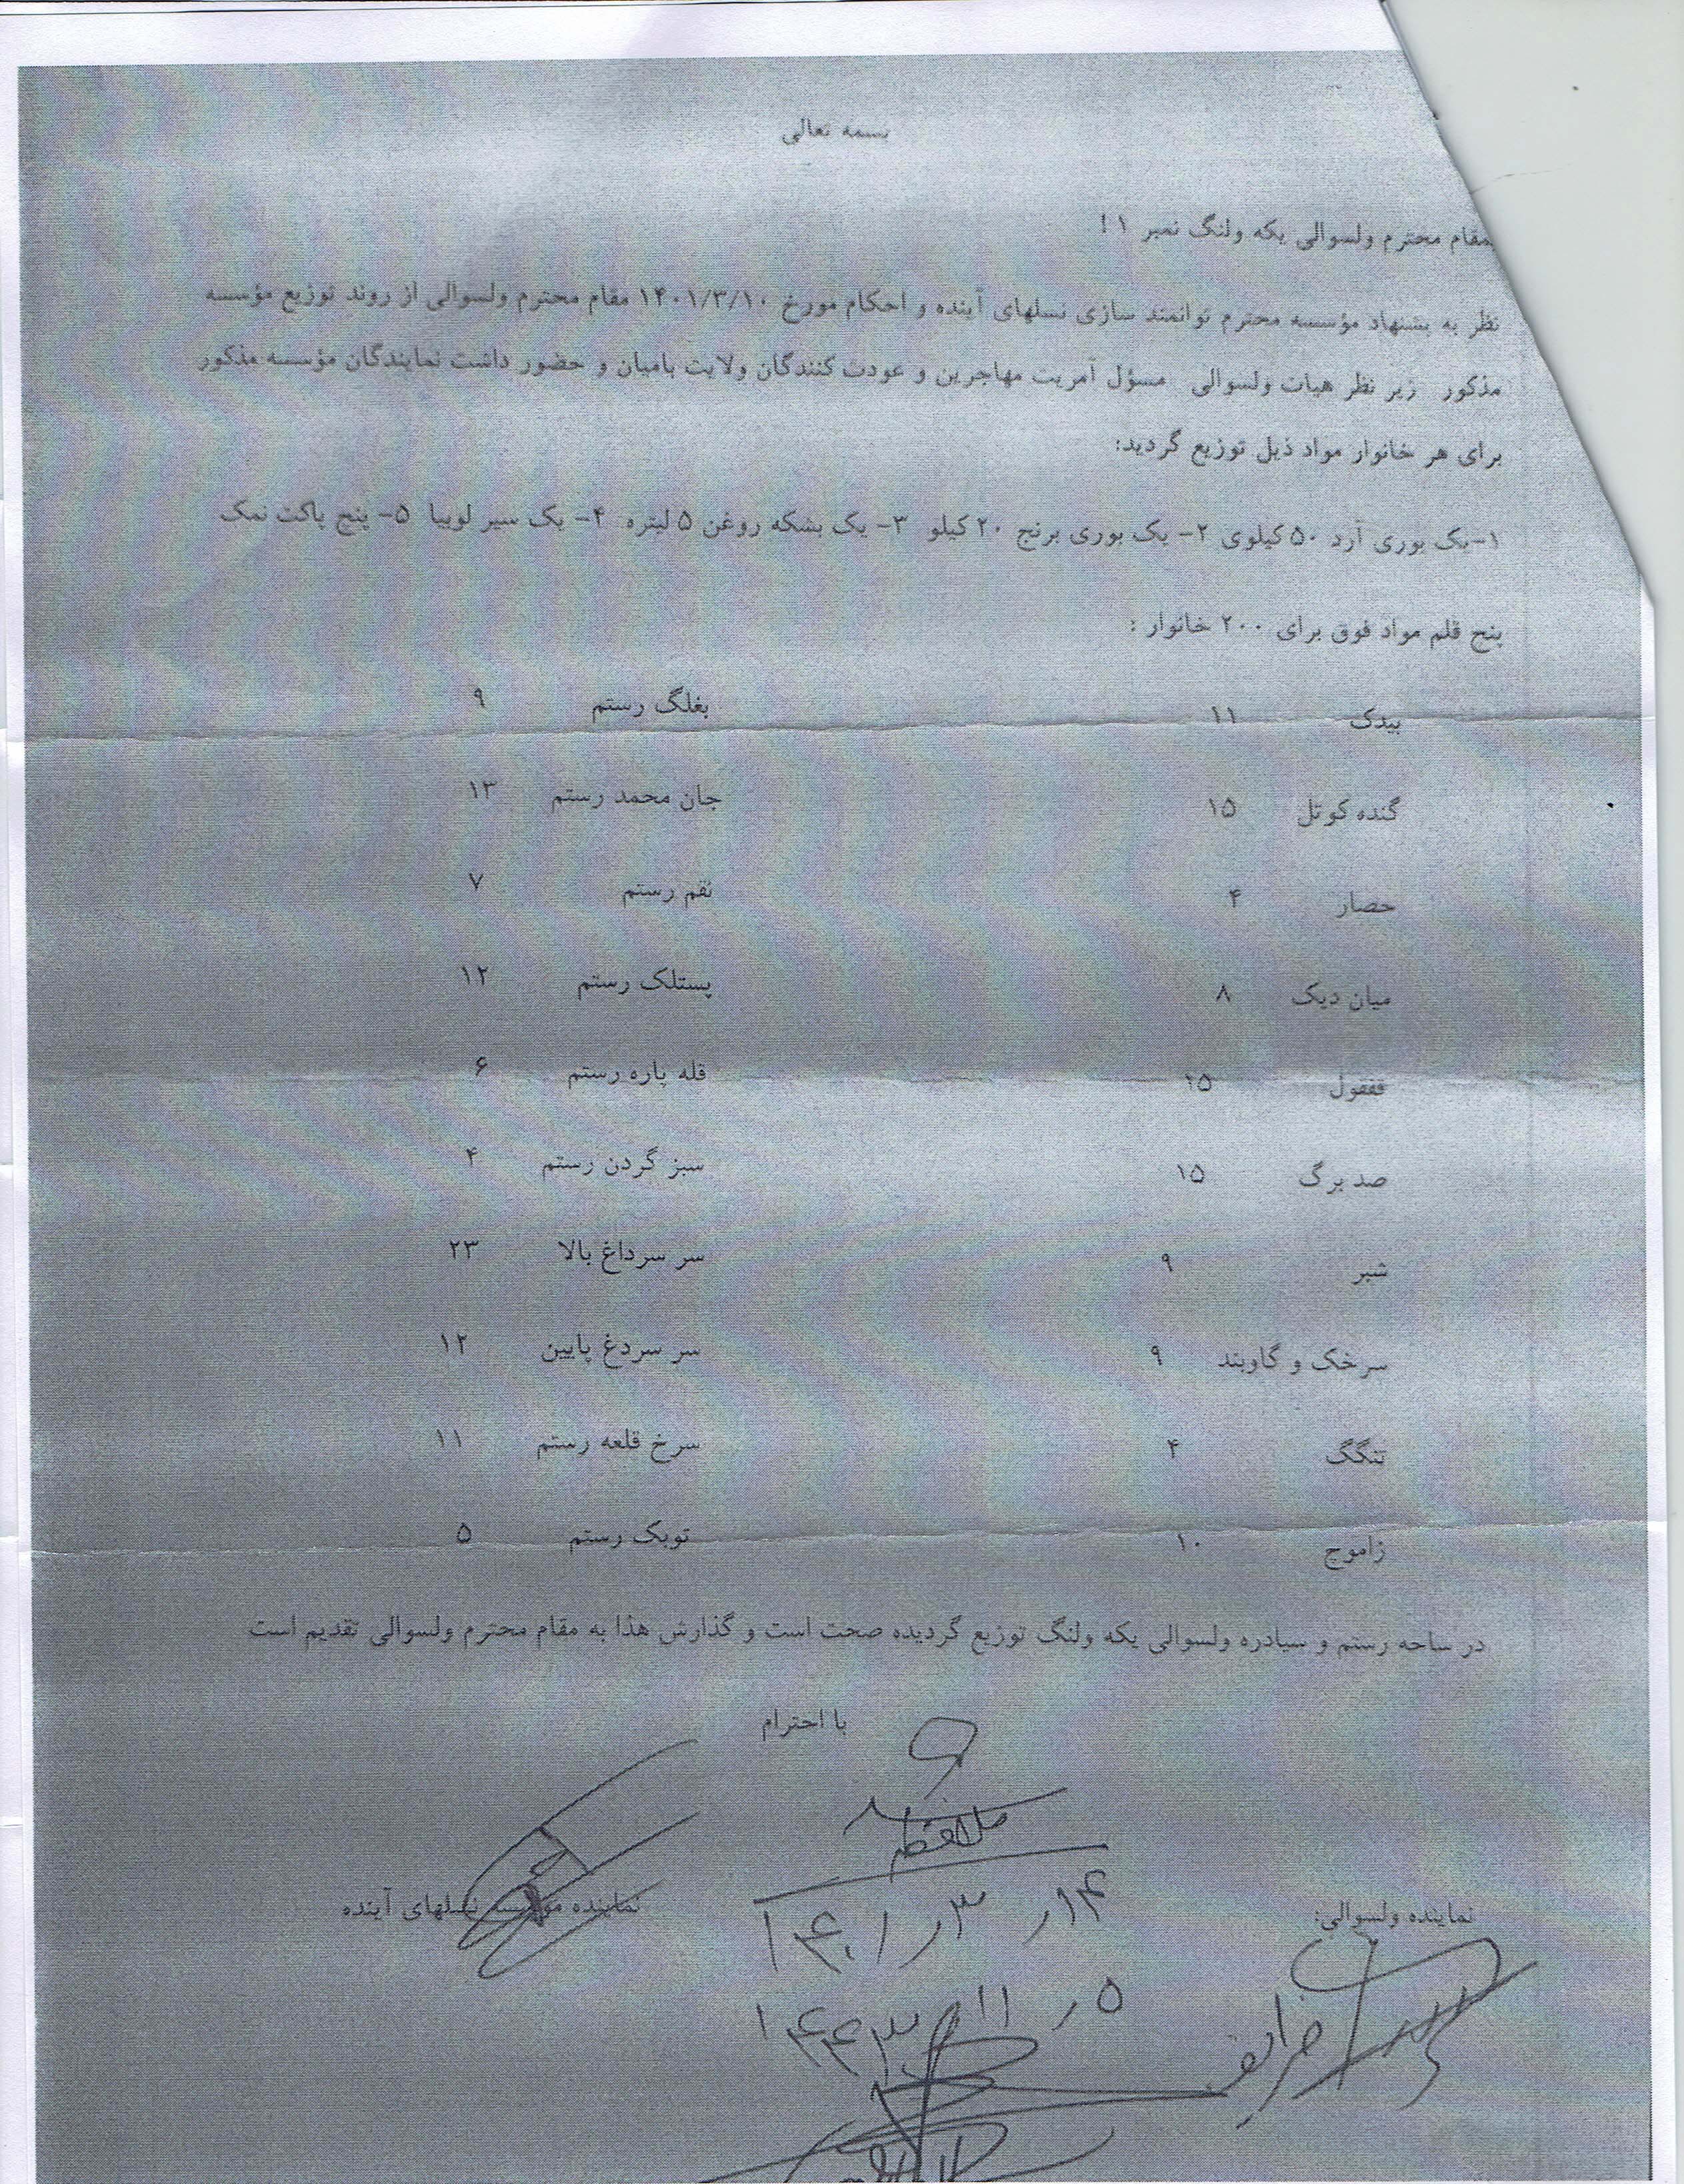 بسمه تعالی
بمقام محترم ولسوالی یکه ولنگ نمبر ۱!
نظر به پشنهاد مؤسسه محترم توانمند سازی نسلهای آینده و احکام مورخ ۱۴۰۱/۳/۱۰ مقام محترم ولسوالی از روند توزیع مؤسسه
مذکور زیر نظر هیات ولسوالی مسؤل آمریت مهاجرین و عودت کنندگان ولایت بامیان و حضور داشت نمایندگان مؤسسه مذکور
برای هر خانوار مواد ذیل توزیع گردید:
۱-یک بوری آرد ۵۰ کیلوی ۲- یک بوری برنج ۲۰ کیلو ۳- یک بشکه روغن ۵ لیتره ۴- یک سیر لوبیا ۵- پنج پاکت نمک
پنج قلم مواد فوق برای ۲۰۰ خانوار :
بیدک ۱۱ بغلگ رستم ۹
گنده کوتل ۱۵ جان محمد رستم ۱۳
حصار ۴ نقم رستم ۷
میان دیک ۸ پستلک رستم ۱۲
قله پاره رستم ۶
صد برگ ۱۵ سبز گردن رستم ۴
شبر ۹ سر سرداغ بالا ۲۳
سرخک و گاوبند ۹ سر سردغ پایین ۱۲
تنگگ ۴ سرخ قلعه رستم ۱۱
زاموج ۱۰ توبک رستم ۵
در ساحه رستم و سیادره ولسوالی یکه ولنگ توزیع گردیده صحت است و گذارش هذا به مقام محترم ولسوالی تقدیم است
با احترام
ملاحظه شد
۱۴۰۱ / ۳ / ۱۴
نماینده ولسوالی: نماینده مؤسسه نسلهای آینده
۱۴۴۳ / ۱۱ / ۵